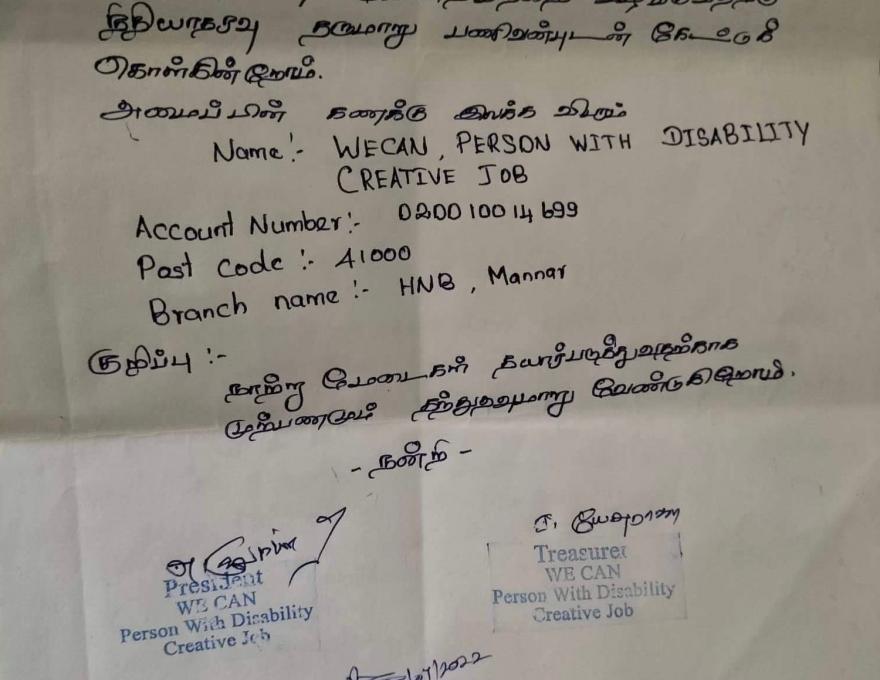 நிதியாகவு தருமாறு பணிவன்புடன் கேட்டுக்
கொள்கின்றோம்.
அமைப்பின் கணக்கு இலக்க விபரம்
Name :- WECAN, PERSON WITH DISABILITY
CREATIVE JOB
Account Number :- 020010014699
Post code :- 41000
Branch name :- HNB, Mannar
குறிப்பு :-
நாற்று மேடைகள் தயார்படுத்துவதற்காக
முற்பணமும் தந்துதவுமாறு வேண்டுகிறோம்.
- நன்றி -
President
WE CAN
Person With Disability
Creative Job
Treasurer
WE CAN
Person With Disability
Creative Job
/2022